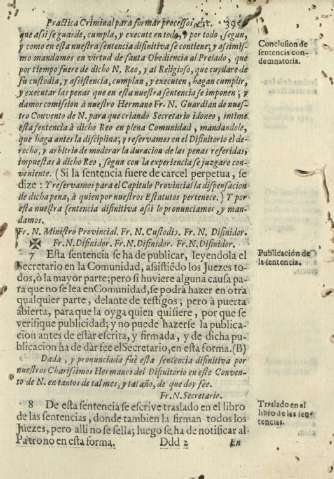 Practica Criminal para formar processos, &c. 395
que assi se guarde, cumpla, y execute en todo, y por todo, segun,
y como en esta nuestra sentencia difinitiva se contiene; y assimis-
mo mandamos en virtud de santa Obediencia al Prelado, que
por tiempo fuere de dicho N. Reo, y al Religioso, que cuydare de
su custodia, y assistencia, cumplan, y executen, hagan cumplir,
y executar las penas que en esta nuestra sentencia se imponen; y
damos comission à nuestro Hermano Fr. N. Guardian de nues-
tro Convento de N. para que criando Secretario Idoneo, intime
esta sentencia à dicho Reo en plena Comunidad, mandandole,
que haga luego la disciplina; y reservamos en el Difinitorio el de-
recho, y arbitrio de moderar la duracion de las penas referidas,
impuestas à dicho Reo, segun con la experiencia se juzgare con-
veniente. (Si la sentencia fuere de carcel perpetua, se
dize: Y reservamos para el Capitulo Provincial la dispensacion
de dicha pena, à quien por nuestros Estatutos pertenece.) Y por
esta nuestra sentencia difinitiva assi lo pronunciamos, y man-
damos.
Fr. N. Ministro Provincial. Fr. N. Custodio. Fr. N. Difinidor.
Fr. N. Difinidor. Fr. N. Difinidor. Fr. N. Difinidor.
7 Esta sentencia se ha de publicar, leyendola el
Secretario en la Comunidad, assistiẽdo los Juezes to-
dos, ò la mayor parte; pero si huviere alguna causa pa-
ra que no se lea en Comunidad, se podrà hazer en otra
qualquier parte, delante de testigos; pero à puerta
abierta, para que la oyga quien quisiere, por que se
verifique publicidad; y no puede hazerse la publica-
cion antes de estàr escrita, y firmada, y de dicha pu-
blicacion ha de dar fee el Secretario, en esta forma. (B)
Dada, y pronunciada fuè esta sentencia difinitiva por
nuestros Charissimos Hermanos del Difinitorio en este Conven-
to de N. en tantos de tal mes, y tal año, de que doy fee.
Fr. N. Secretario.
8 De esta sentencia se escrive traslado en el libro
de las sentencias, donde tambien la firman todos los
Juezes, pero alli no se sella; luego se ha de notificar al
Patrono en esta forma. Ddd 2 En
Conclusion de
sentencia con-
demnatoria.
Publicación de
la sentencia.
Traslado en el
libro de las sen-
tencias.